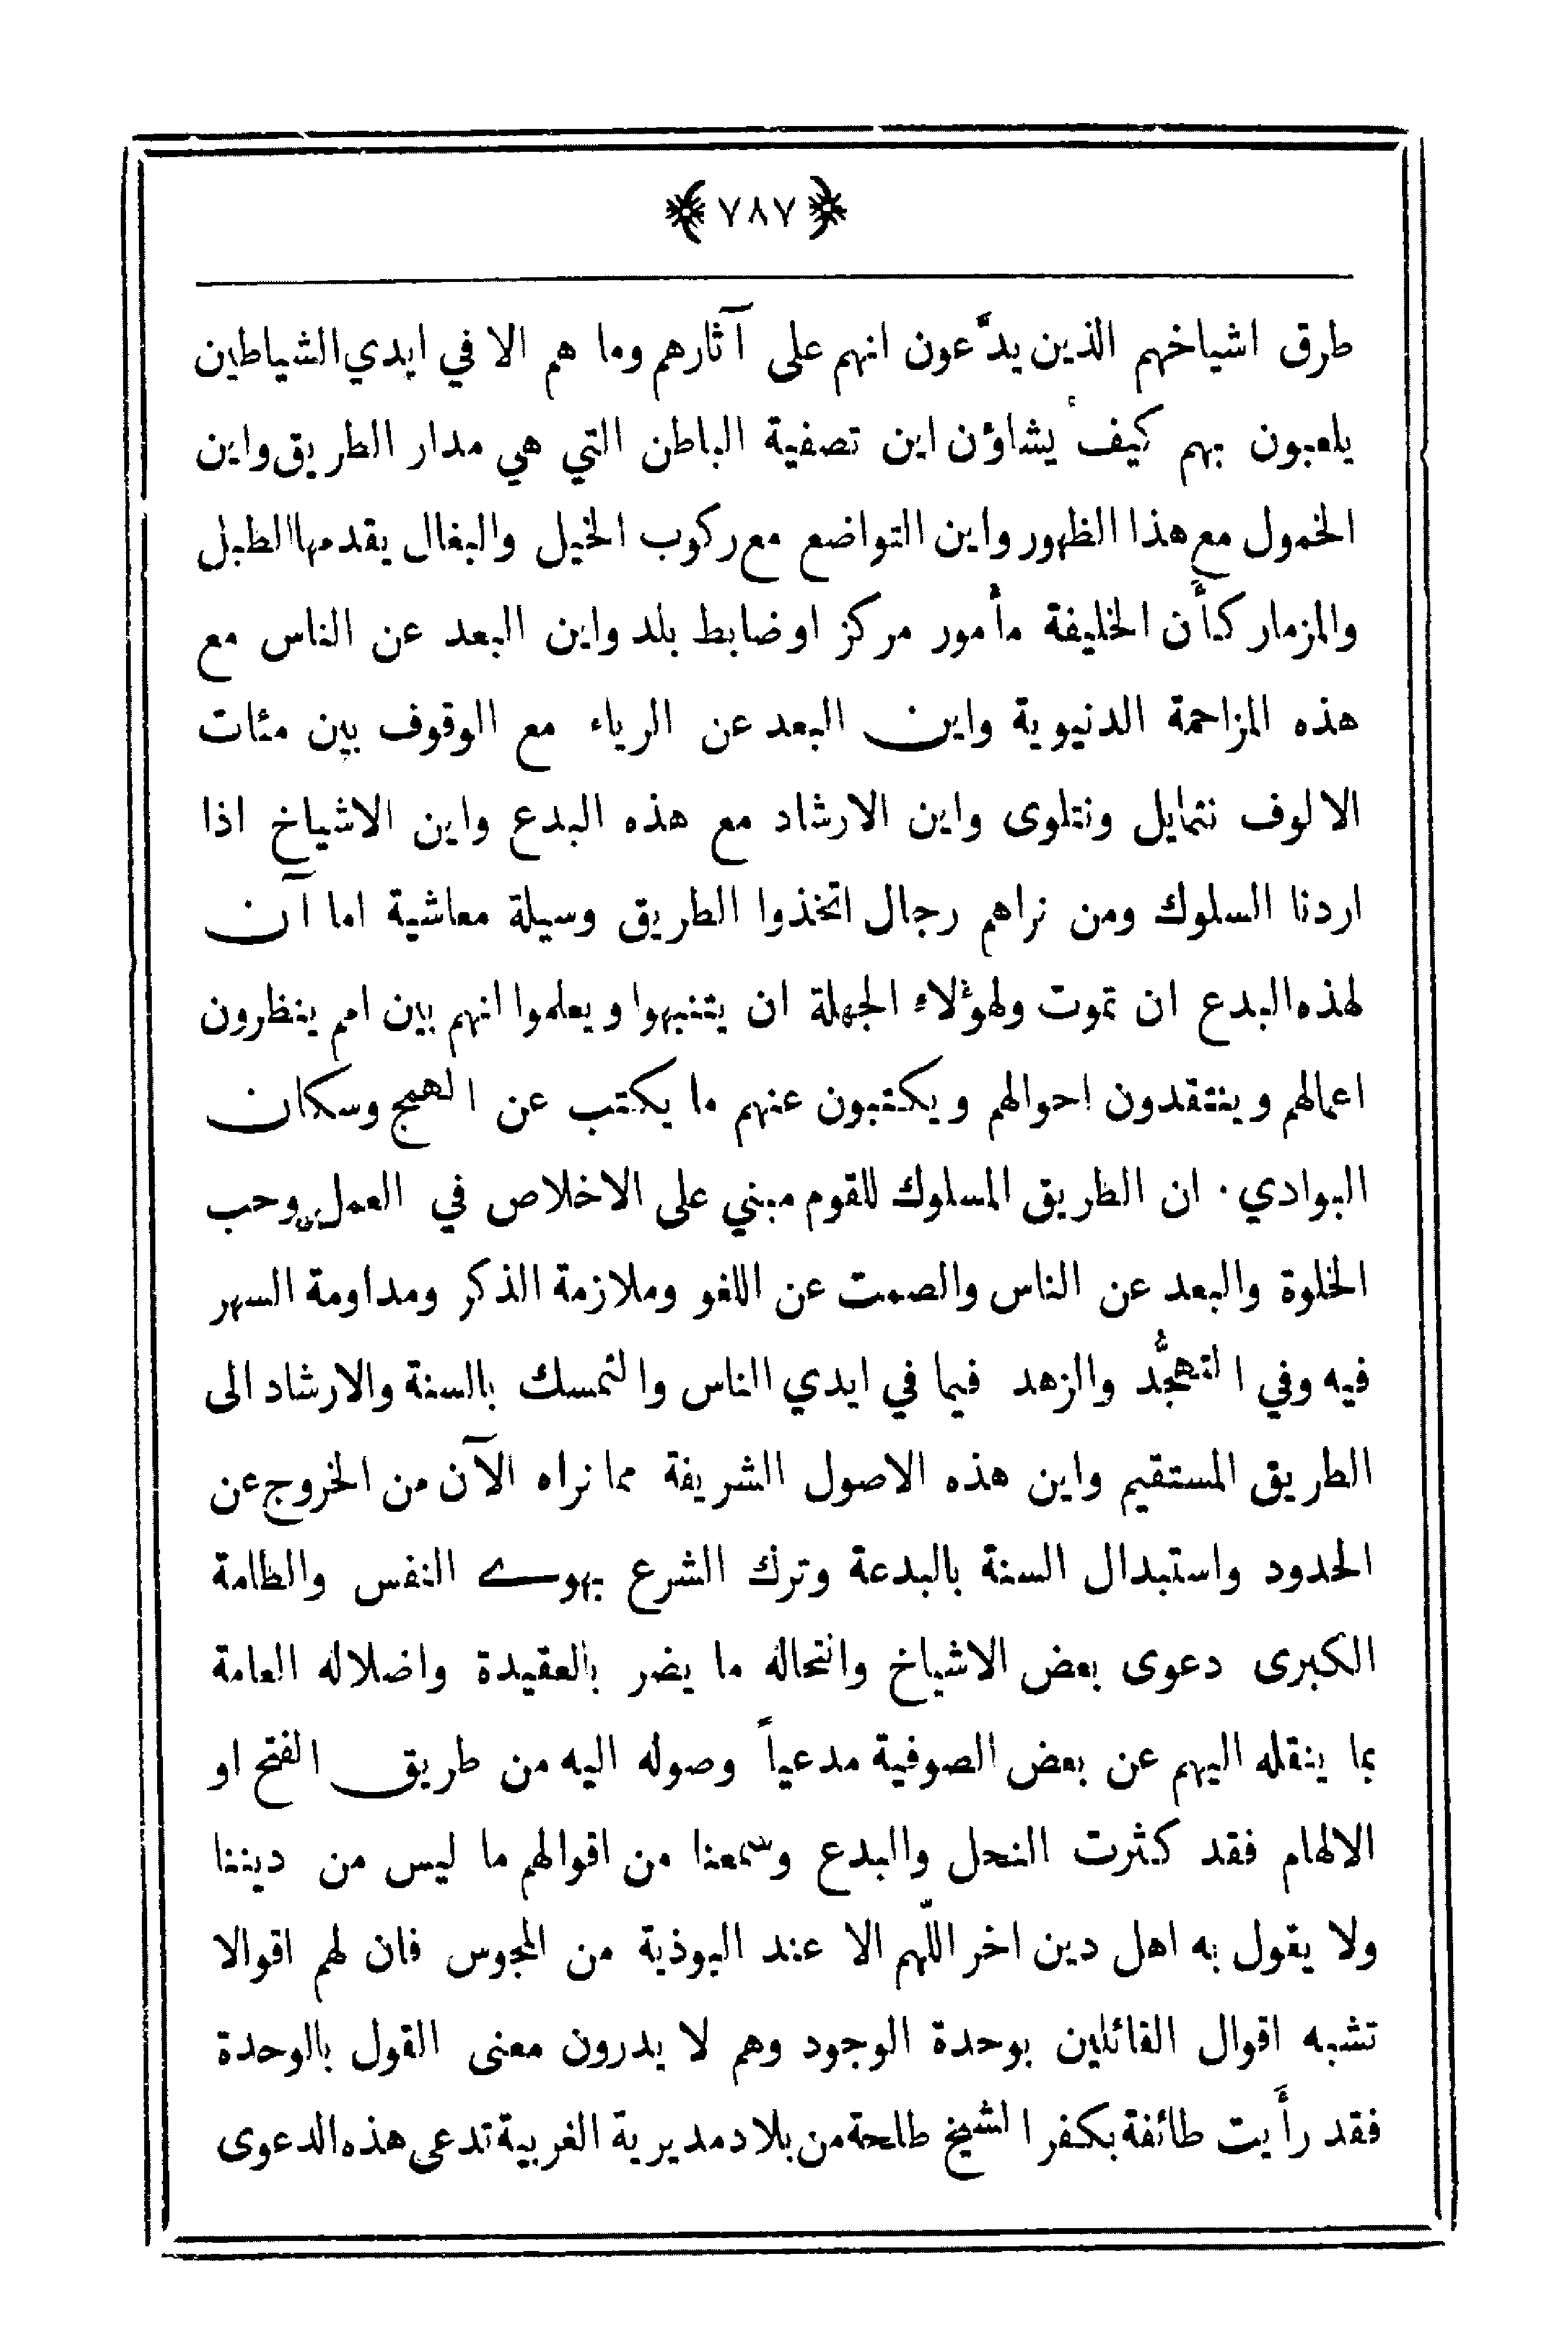 ﴿٧٨٧﴾
طرق اشياخهم الذين يدَّعون انهم على آثارهم وما هم الا في ايدي الشياطين
يلعبون بهم كيف يشاؤن اين تصفية الباطن التي هي مدار الطريق واين
الخمول مع هذا الظهور واين التواضع مع ركوب الخيل والبغال يقدمها الطبل
والمزمار كأن الخليفة مأمور مركز او ضابط بلد واين البعد عن الناس مع
هذه المزاحمة الدنيوية واين البعد عن الرياء مع الوقوف بين مئات
الالوف نتمايل ونتلوى واين الارشاد مع هذه البدع واين الاشياخ اذا
اردنا السلوك ومن نراهم رجال اتخذوا الطريق وسيلة معاشية اما آن
لهذه البدع ان تموت ولهؤلاء الجهلة ان يتنبهوا ويعلموا انهم بين امم ينظرون
اعمالهم وينتقدون احوالهم ويكتبون عنهم ما يكتب عن الهمج وسكان
البوادي . ان الطريق المسلوك للقوم مبني على الاخلاص في العمل وحب
الخلوة والبعد عن الناس والصمت عن اللغو وملازمة الذكر ومداومة السهر
فيه وفي التهجُّد والزهد فيما في ايدي الناس والتمسك بالسنة والارشاد الى
الطريق المستقيم واين هذه الاصول الشريفة مما نراه الآن من الخروج عن
الحدود واستبدال السنة بالبدعة وترك الشرع بهوى النفس والطامة
الكبرى دعوى بعض الاشياخ وانتحاله ما يضر بالعقيدة واضلاله العامة
بما ينقله اليهم عن بعض الصوفية مدعياً وصوله اليه من طريق الفتح او
الالهام فقد كثرت النحل والبدع وسمعنا من اقوالهم ما ليس من ديننا
ولا يقول به اهل دين اخر اللّهم الا عند البوذية من المجوس فان لهم اقوالا
تشبه اقوال القائلين بوحدة الوجود وهم لا يدرون معنى القول بالوحدة
فقد رأيت طائفة بكفر الشيخ طلحة من بلاد مديرية الغربية تدعى هذه الدعوى